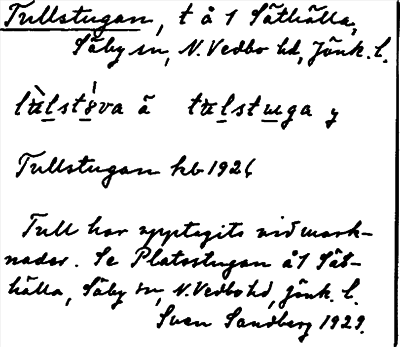 Tullstugan, t å 1 Säthälla,
Säby sn, N. Vedbo hd, Jönk. l.
tù̠lst8̠va ä tu̠lstu̠ga y
Tullstugan kb 1926
Tull har upptagits vid mark-
nader. Se Platsstugan å 1 Sät-
hälla, Säby sn, N. Vedbo hd, Jönk. l.
Sven Sandberg 1929.